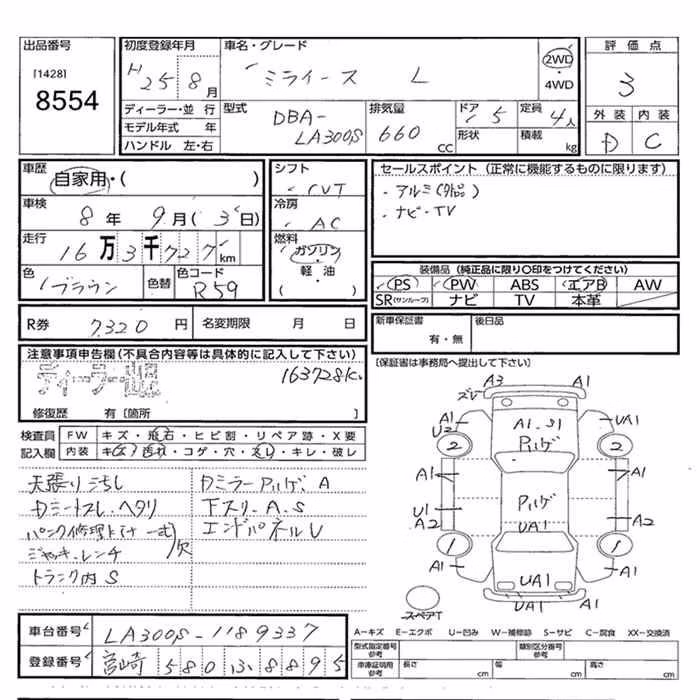 出品番号 初度登録年月 車名・グレード 評価点
[1428] H25年8月 ミライース L 2WD・4WD 3
8554
ディーラー・並行 型式 DBA-LA300S 排気量 660 CC ドア 5 定員 4人 外装 内装
モデル年式 年 形状 積載 kg D C
ハンドル 左・右
車歴 自家用・( ) シフト CVT セールスポイント (正常に機能するものに限ります)
車検 8年 9月 (3日) 冷房 AC ・アルミ(外品)
・ナビ・TV
走行 16万3千727km 燃料 ガソリン・軽油・( )
色 ブラウン 色替 色コード R59 装備品 (純正品に限り○印をつけてください)
PS PW ABS エアB AW
SR(サンルーフ) ナビ TV 本革
R券 7320円 名変期限 月 日 新車保証書 有・無 後日品
注意事項申告欄(不具合内容等は具体的に記入して下さい) [保証書は事務局へ提出して下さい]
163728K
修復歴 有[箇所 ]
検査員 FW キズ・飛石・ヒビ割・リペア跡・X要
記入欄 内装 キズ・汚れ・コゲ・穴・スレ・キレ・破レ
天張りごちし Dミラー Pハゲ、A
Dシートスレ、ヘタリ 下スリ、A、S
パンク修理 エンドパネルU
ジャッキ、レンチ 欠
トランク内 S
A3 A1
ズレ
A1 U2 A1、S1 UA1
2 Pハゲ 2
A1 A1
Pハゲ
U1 A2 UA1 A2
1 1
A1 UA1 A1
UA1 A1
スペアT
車台番号 LA300S-1189337
登録番号 宮崎 580 ひ 8895
A-キズ E-エクボ U-凹み W-補修跡 S-サビ C-腐食 XX-交換済
型式指定番号 参考 類別区分番号 参考
車庫証明用 参考 長さ cm 幅 cm 高さ cm